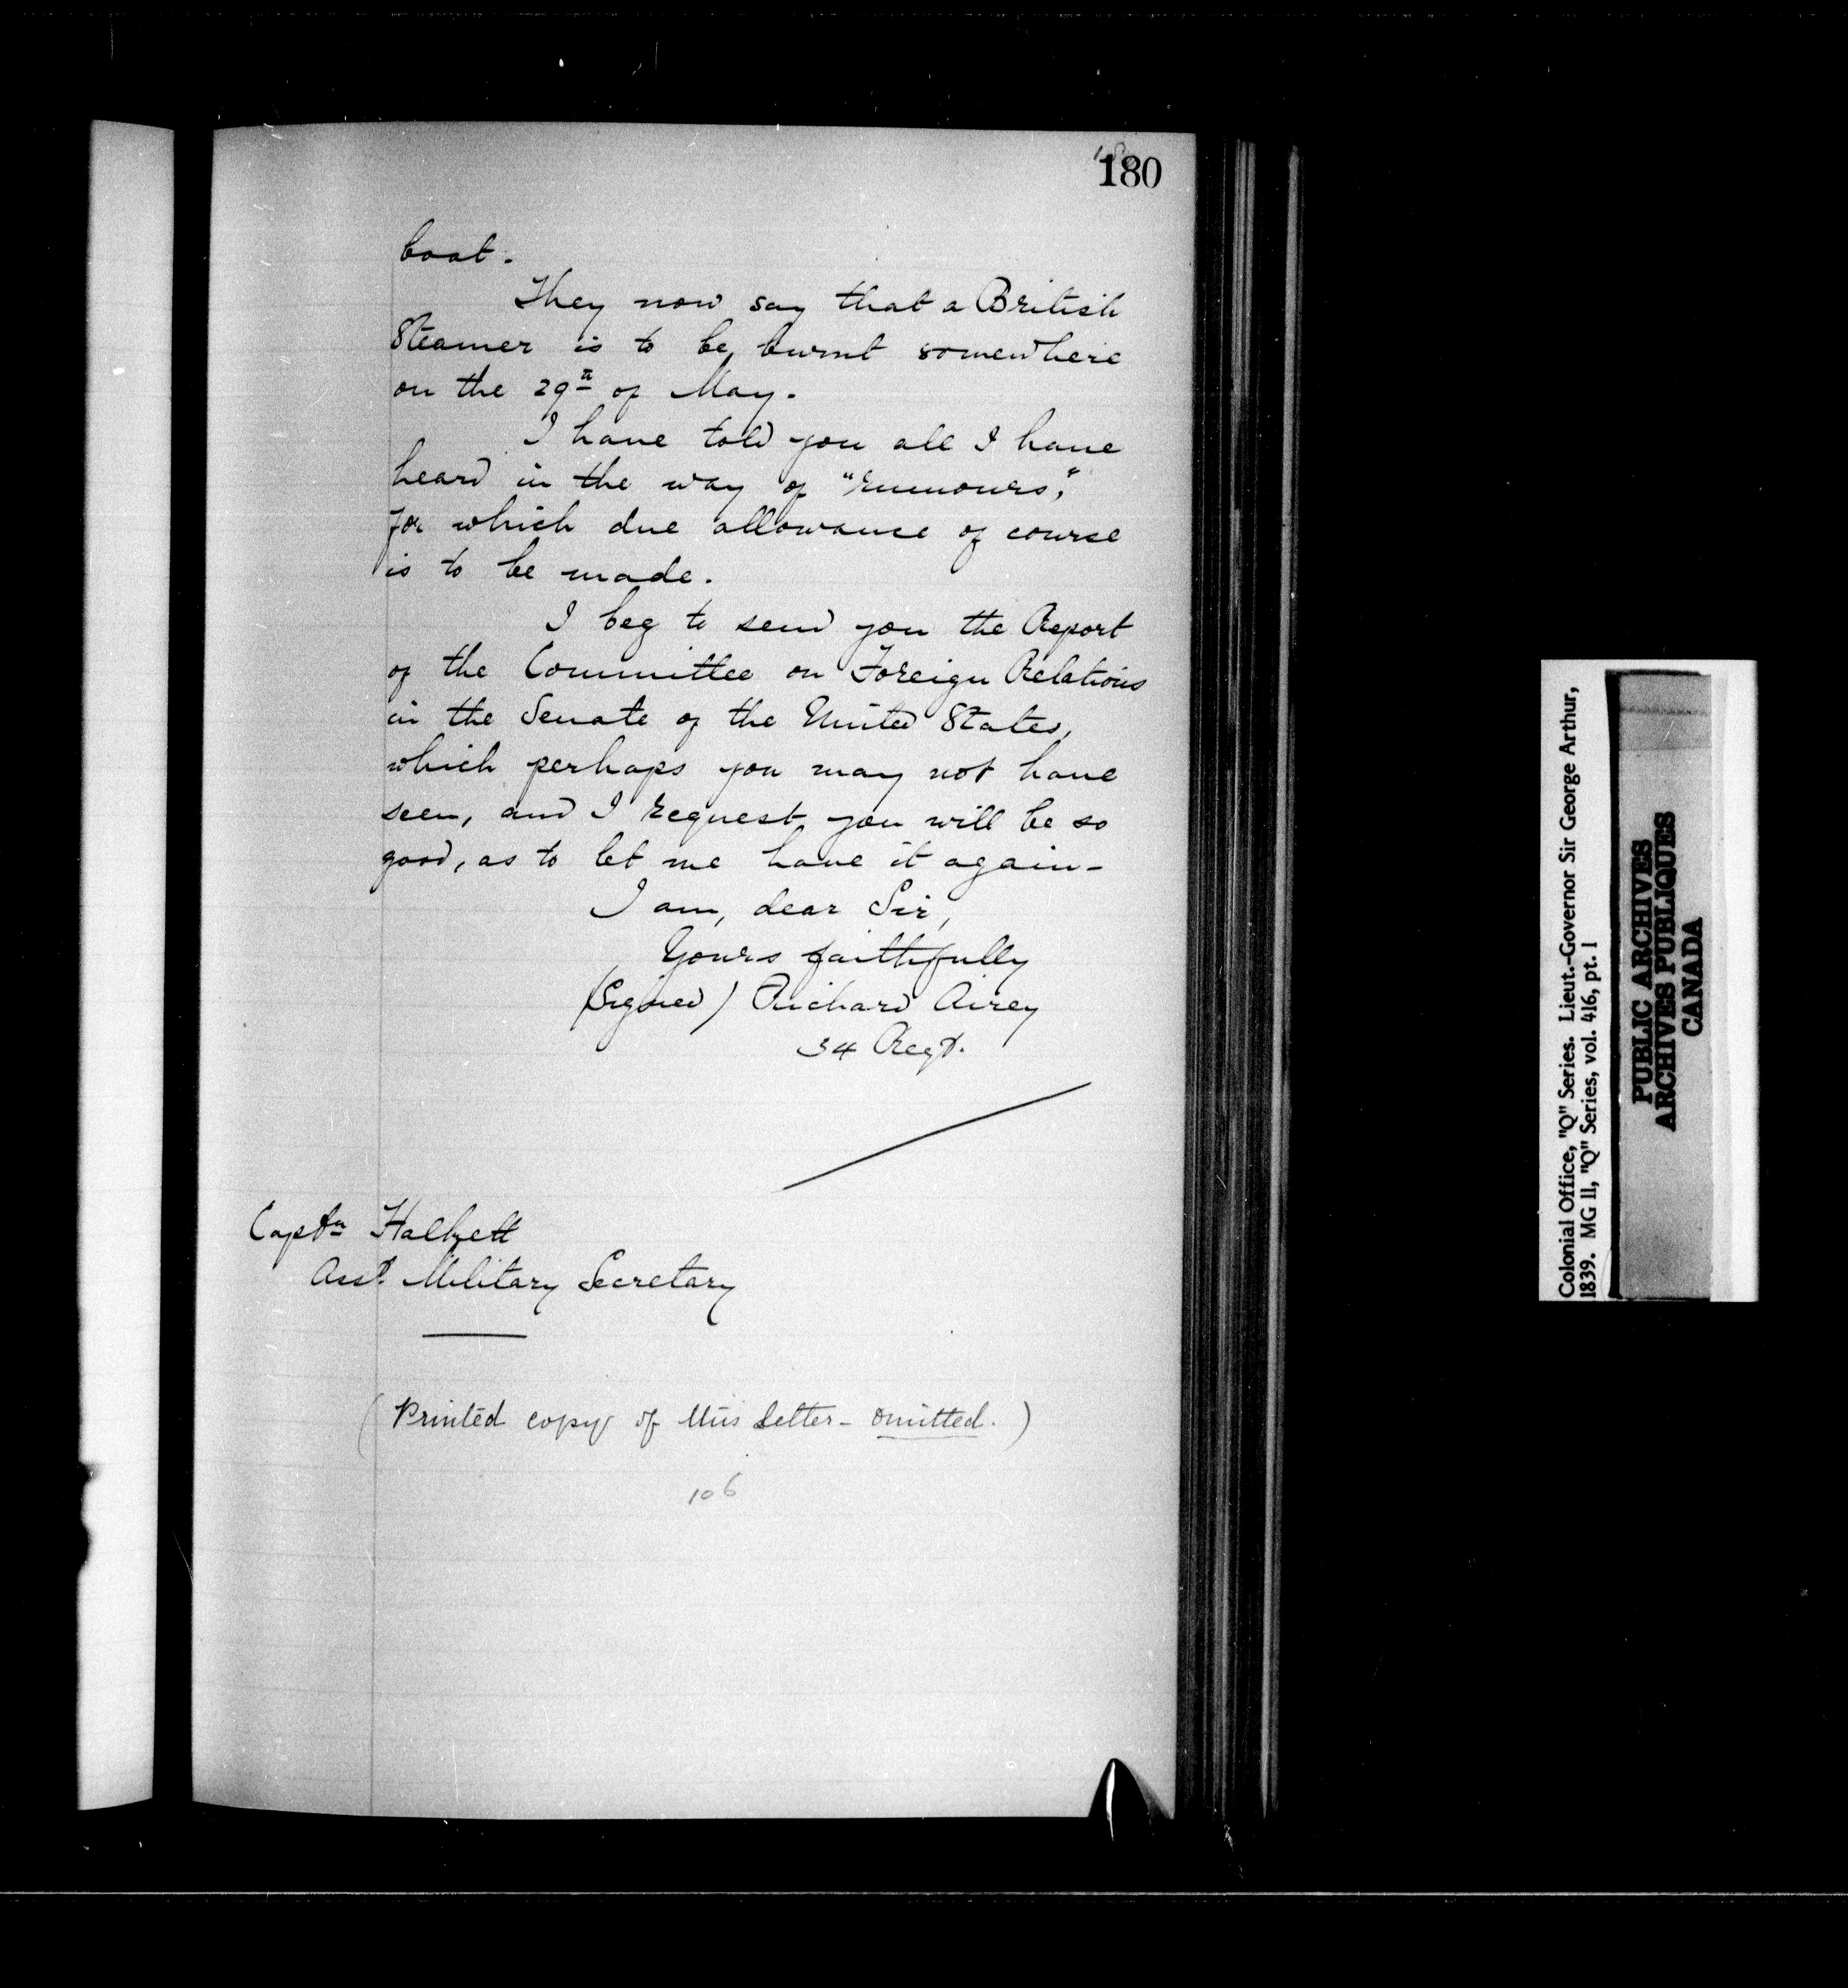 180
boat.
They now say that a British
Steamer is to be burnt somewhere
on the 29th of May.
I have told you all I have
heard in the way of "rumours,"
for which due allowance of course
is to be made.
I beg to send you the Report
of the Committee on Foreign Relations
in the Senate of the United States,
which perhaps you may not have
seen, and I request you will be so
good, as to let me have it again-
I am, dear Sir,
Yours faithfully
(Signed) Richard Airey
34 Regt.
Captn Halkett
Asst. Military Secretary
(Printed copy of this letter - omitted.)
106
Colonial Office, "Q" Series. Lieut.-Governor Sir George Arthur,
1839. MG 11, "Q" Series, vol. 416, pt. 1
PUBLIC ARCHIVES
ARCHIVES PUBLIQUES
CANADA